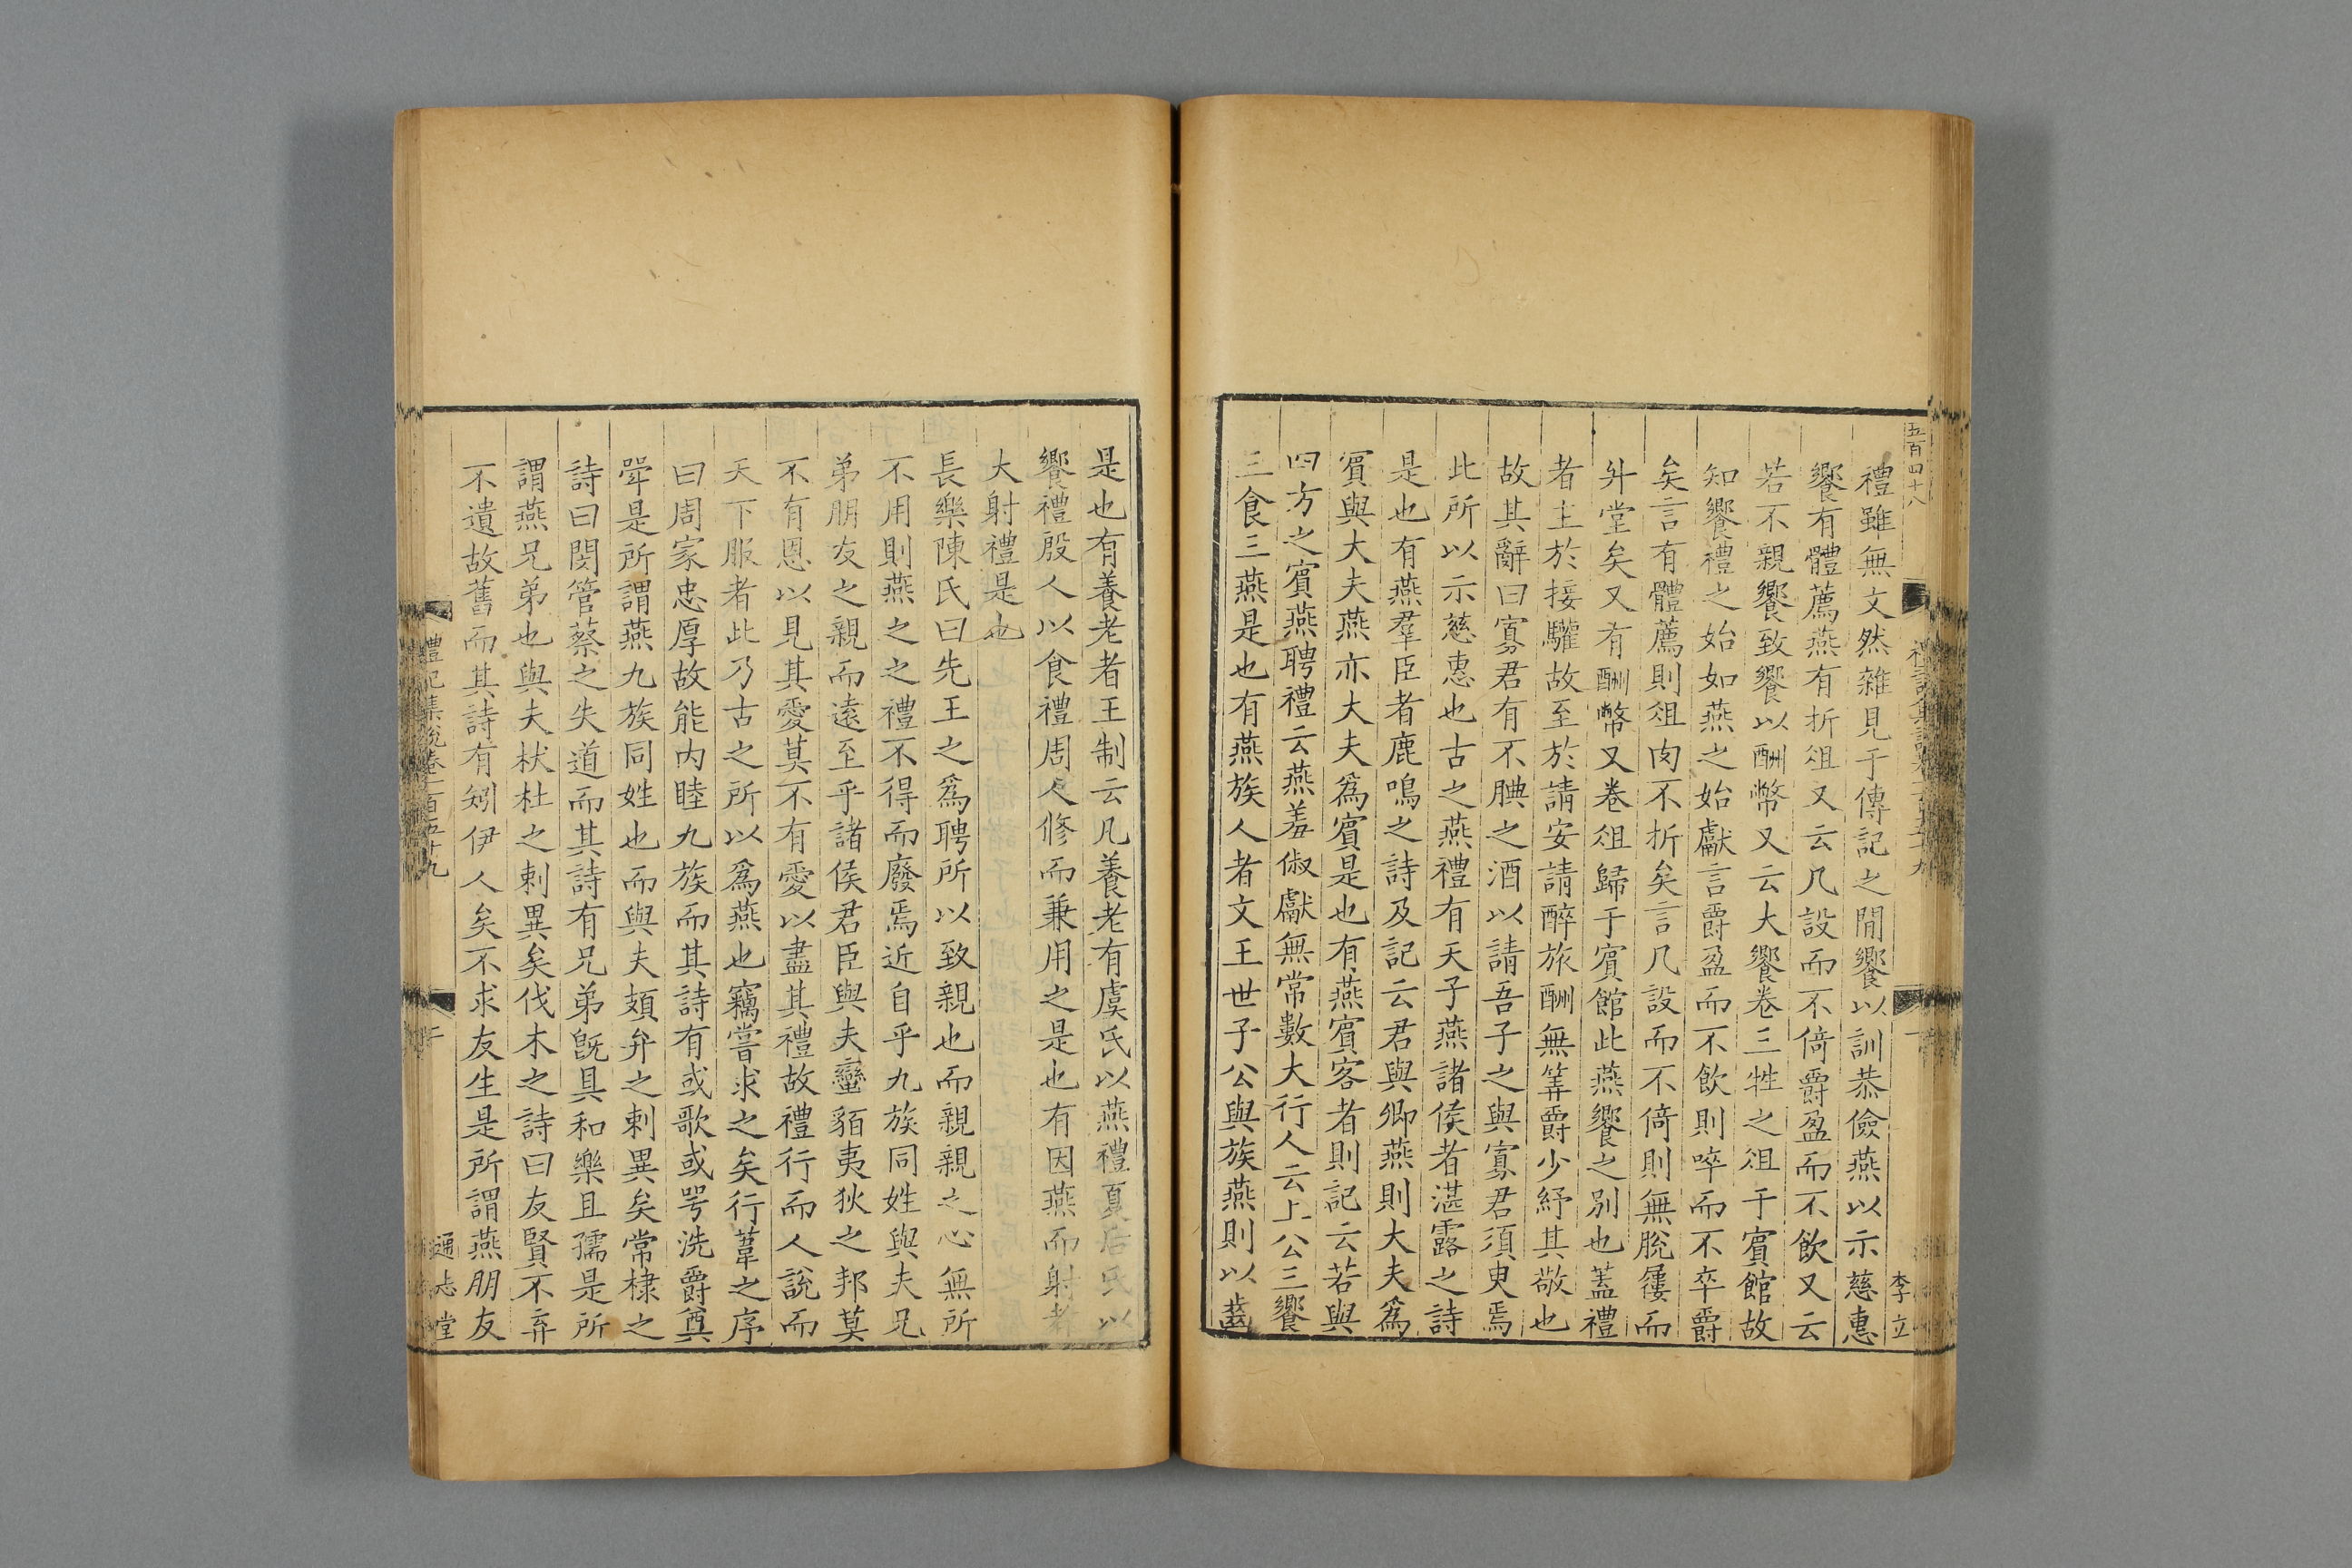 五百四十八
李立
禮雖無文然雜見于傳記之間饗以訓恭儉燕以示慈惠
饗有體薦燕有折俎又云几設而不倚爵盈而不飲又云
若不親饗致饗以酬幣又云大饗卷三牲之俎于賓館故
知饗禮之始如燕之始獻言爵盈而不飲則啐而不卒爵
矣言有體薦則俎肉不折矣言几設而不倚則無脫屨而
升堂矣又有酬幣又卷俎歸于賓館此燕饗之別也蓋禮
者主於接驩故至於請安請醉旅酬無筭爵少紓其敬也
故其辭曰寡君有不腆之酒以請吾子之與寡君須臾焉
此所以示慈惠也古之燕禮有天子燕諸侯者湛露之詩
是也有燕羣臣者鹿鳴之詩及記云君與卿燕則大夫爲
賓與大夫燕亦大夫爲賓是也有燕賓客者則記云若與
四方之賓燕聘禮云燕羞俶獻無常數大行人云上公三饗
三食三燕是也有燕族人者文王世子公與族燕則以齒
是也有養老者王制云凡養老有虞氏以燕禮夏后氏以
饗禮殷人以食禮周人修而兼用之是也有因燕而射者
大射禮是也
長樂陳氏曰先王之爲聘所以致親也而親親之心無所
不用則燕之之禮不得而廢焉近自乎九族同姓與夫兄
弟朋友之親而遠至乎諸侯君臣與夫蠻貊夷狄之邦莫
不有恩以見其愛莫不有愛以盡其禮故禮行而人說而
天下服者此乃古之所以爲燕也竊嘗求之矣行葦之序
曰周家忠厚故能內睦九族而其詩有或歌或咢洗爵奠
斝是所謂燕九族同姓也而與夫頍弁之刺異矣常棣之
詩曰閔管蔡之失道而其詩有兄弟旣具和樂且孺是所
謂燕兄弟也與夫杕杜之刺異矣伐木之詩曰友賢不弃
不遺故舊而其詩有矧伊人矣不求友生是所謂燕朋友
禮記集說卷一百五十九
通志堂